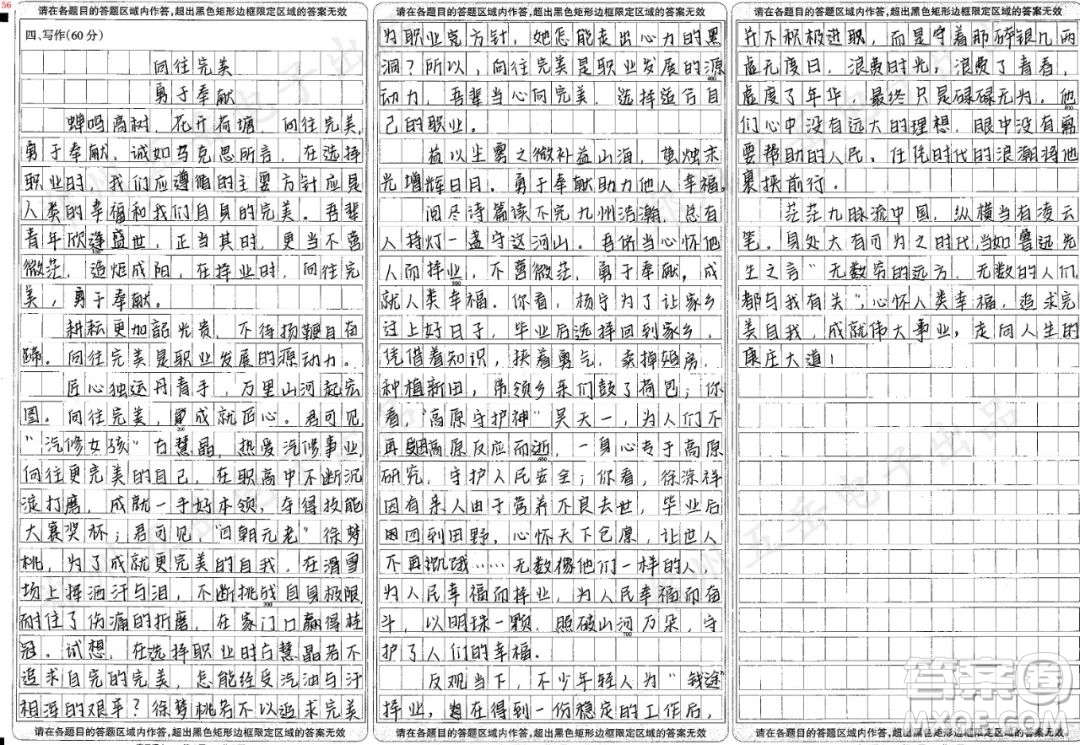 56
请在各题目的答题区域内作答,超出黑色矩形边框限定区域的答案无效
四、写作(60分)
向往完美
勇于奉献
蝉鸣高树,花开荷塘,向往完美,
勇于奉献,诚如马克思所言,在选择
职业时,我们应遵循的主要方针应是
人类的幸福和我们自身的完美。吾辈
青年欣逢盛世,正当其时,更当不啻
微茫,造炬成阳,在择业时,向往完
美,勇于奉献。
耕耘更加韶光贵,不待扬鞭自奋
蹄。向往完美是职业发展的源动力。
匠心独运丹青手,万里山河起宏
图。向往完美,成就匠心。君可见
"汽修女孩"古慧晶,热爱汽修事业,
向往更完美的自己,在职高中不断沉
淀打磨,成就一手好本领,夺得技能
大赛奖杯;君可见,"四朝元老"徐梦
桃,为了成就更完美的自我,在滑雪
场上挥洒汗与泪,不断挑战自身极限
耐住了伤痛的折磨,在家门口赢得桂
冠。试想,在选择职业时古慧晶若不
追求自完的完美,怎能经受汽油与汗
相浸的艰辛?徐梦桃若不以追求完美
请在各题目的答题区域内作答,超出黑色矩形边框限定区域的答案无效
请在各题目的答题区域内作答,超出黑色矩形边框限定区域的答案无效
为职业竞方针,她怎能走出心力的黑
洞?所以,向往完美是职业发展的源
动力,吾辈当心向完美,选择适合自
己的职业。
益以尘雾之微补益山海,萤烛末
光增辉日月。勇于奉献助力他人幸福。
阅尽诗篇读不完九州浩瀚,总有
人持灯一盏守这河山。吾侪当心怀他
人而择业,不啻微茫,勇于奉献。成
就人类幸福。你看,杨守为了让家乡
过上好日子,毕业后选择回到家乡,
凭借着知识,挟着勇气,卖掉婚房,
种植新田,带领乡亲们鼓了荷包;你
看,"高原守护神"吴天一,为人们不
再因高原反应而逝,一身心专于高原
研究,守护人民安全;你看,徐淙祥
因有亲人由于营养不良去世,毕业后
回到田野,心怀天下仓廪,让世人
不再饥饿……无数像他们一样的人,
为人民幸福而择业,为人民幸福而奋
斗,以明珠一颗,照破山河万朵,守
护了人们的幸福。
反观当下,不少年轻人为"钱途"
择业,在得到一份稳定的工作后,
请在各题目的答题区域内作答,超出黑色矩形边框限定区域的答案无效
请在各题目的答题区域内作答,超出黑色矩形边框限定区域的答案无效
并不积极进职,而是守着那碎银几两
虚无度日,浪费时光,浪费了青春,
虚度了年华,最终只是碌碌无为。他
们心中没有远大的理想,眼中没有需
要帮助的人民。任凭时代的浪潮将他
裹挟前行。
茫茫九脉流中国,纵横当有凌云
笔。身处大有可为之时代,当如鲁迅先
生之言"无数的远方,无数的人们
都与我有关",心怀人类幸福,追求完
美自我,成就伟大事业,走向人生的
康庄大道!
请在各题目的答题区域内作答,超出黑色矩形边框限定区域的答案无效
答案圈
MXQE.COM